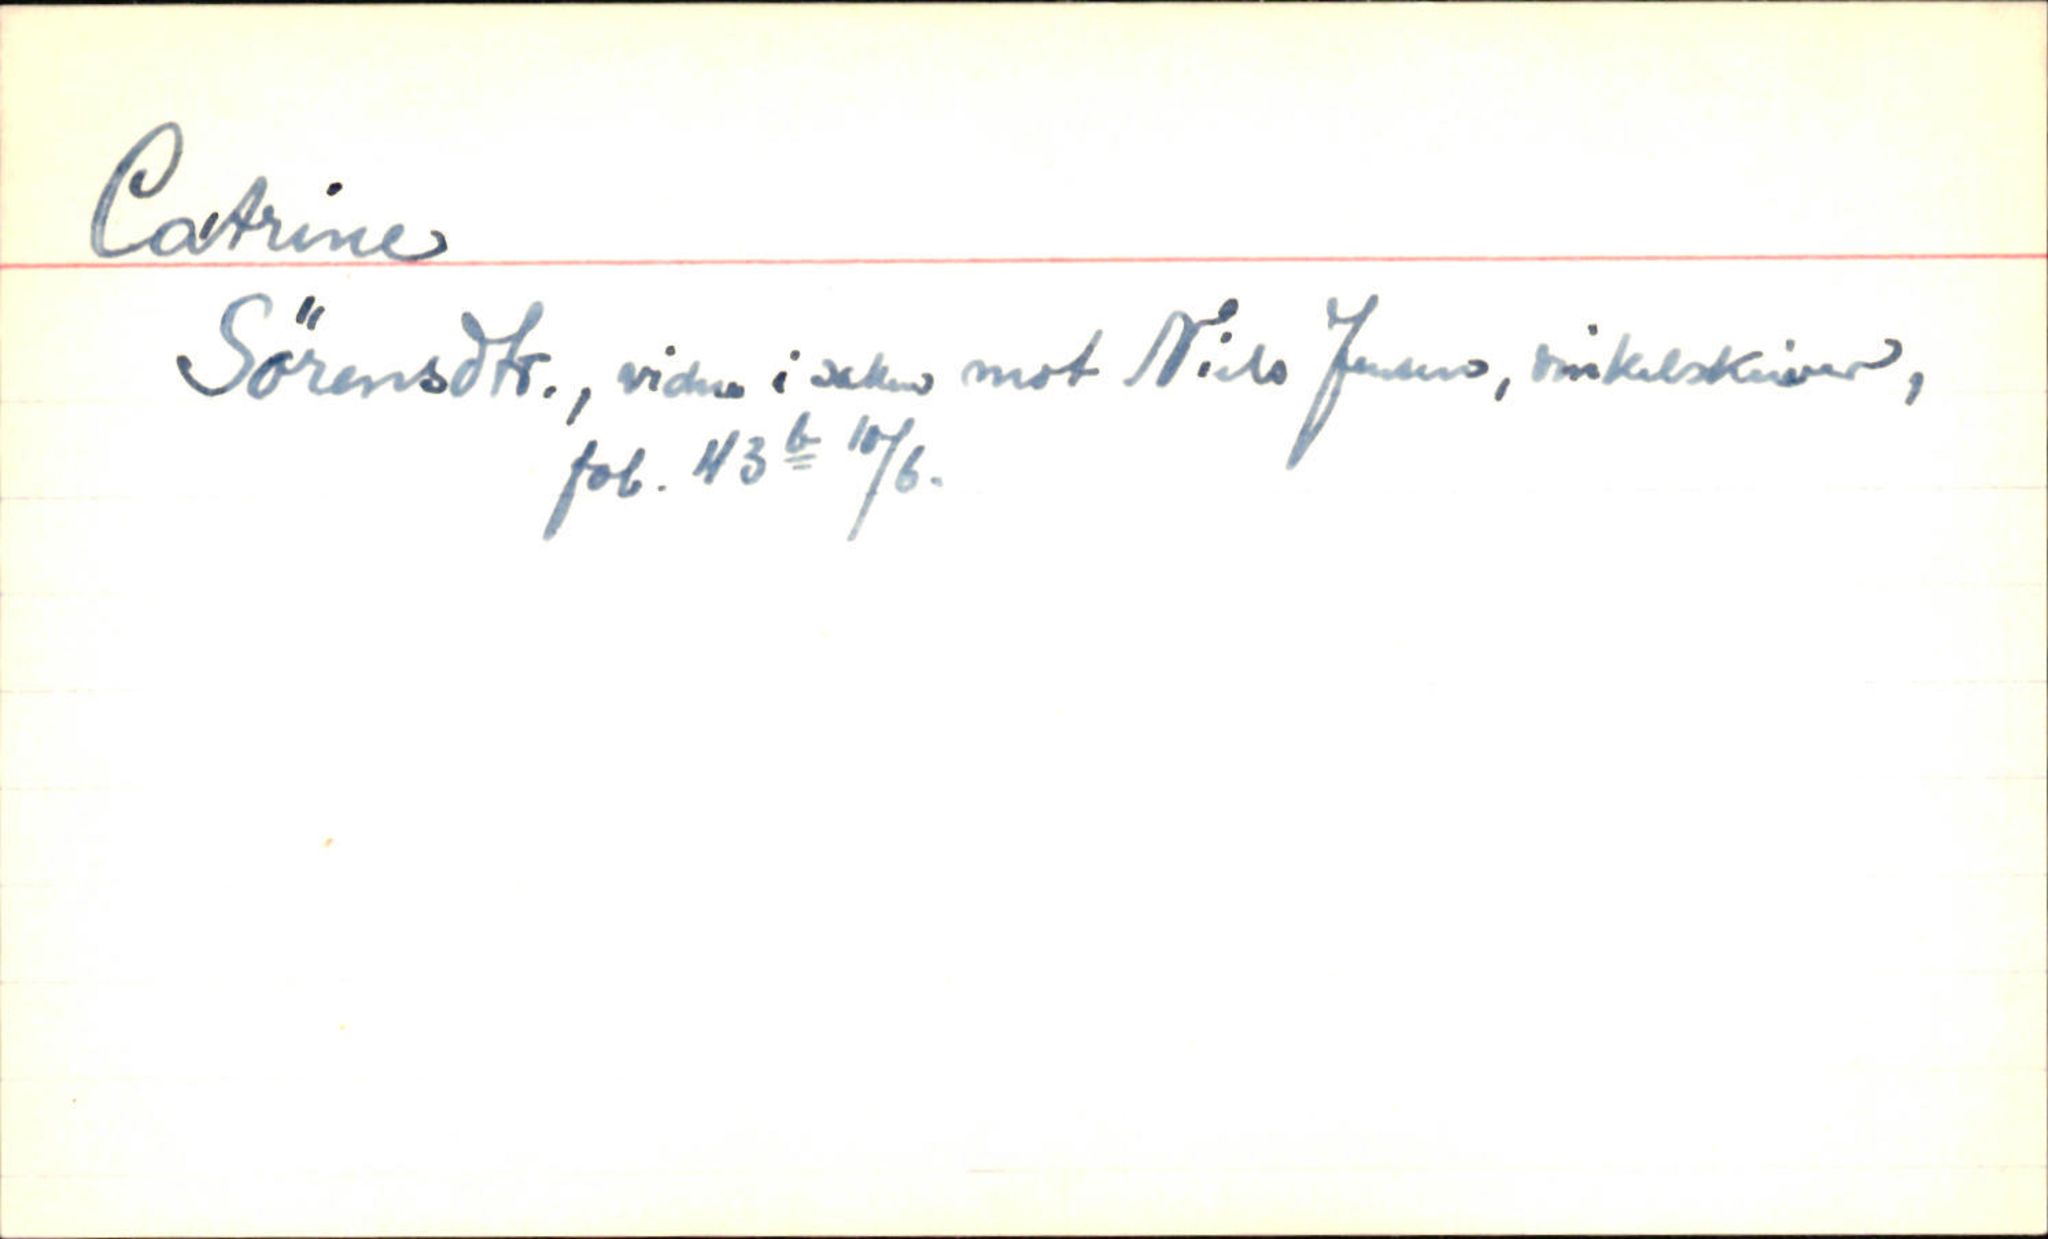 Catrine
Sörensdtr., vidne i saken mot Niels Jensen, vinkelskriver,
fol. 43 b 10/6.